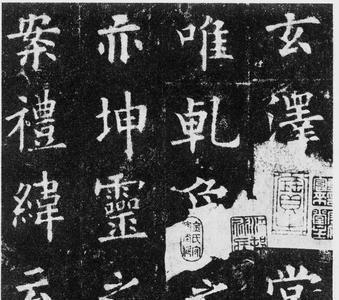 玄澤常
唯乹象之
亦坤靈之
案禮緯云